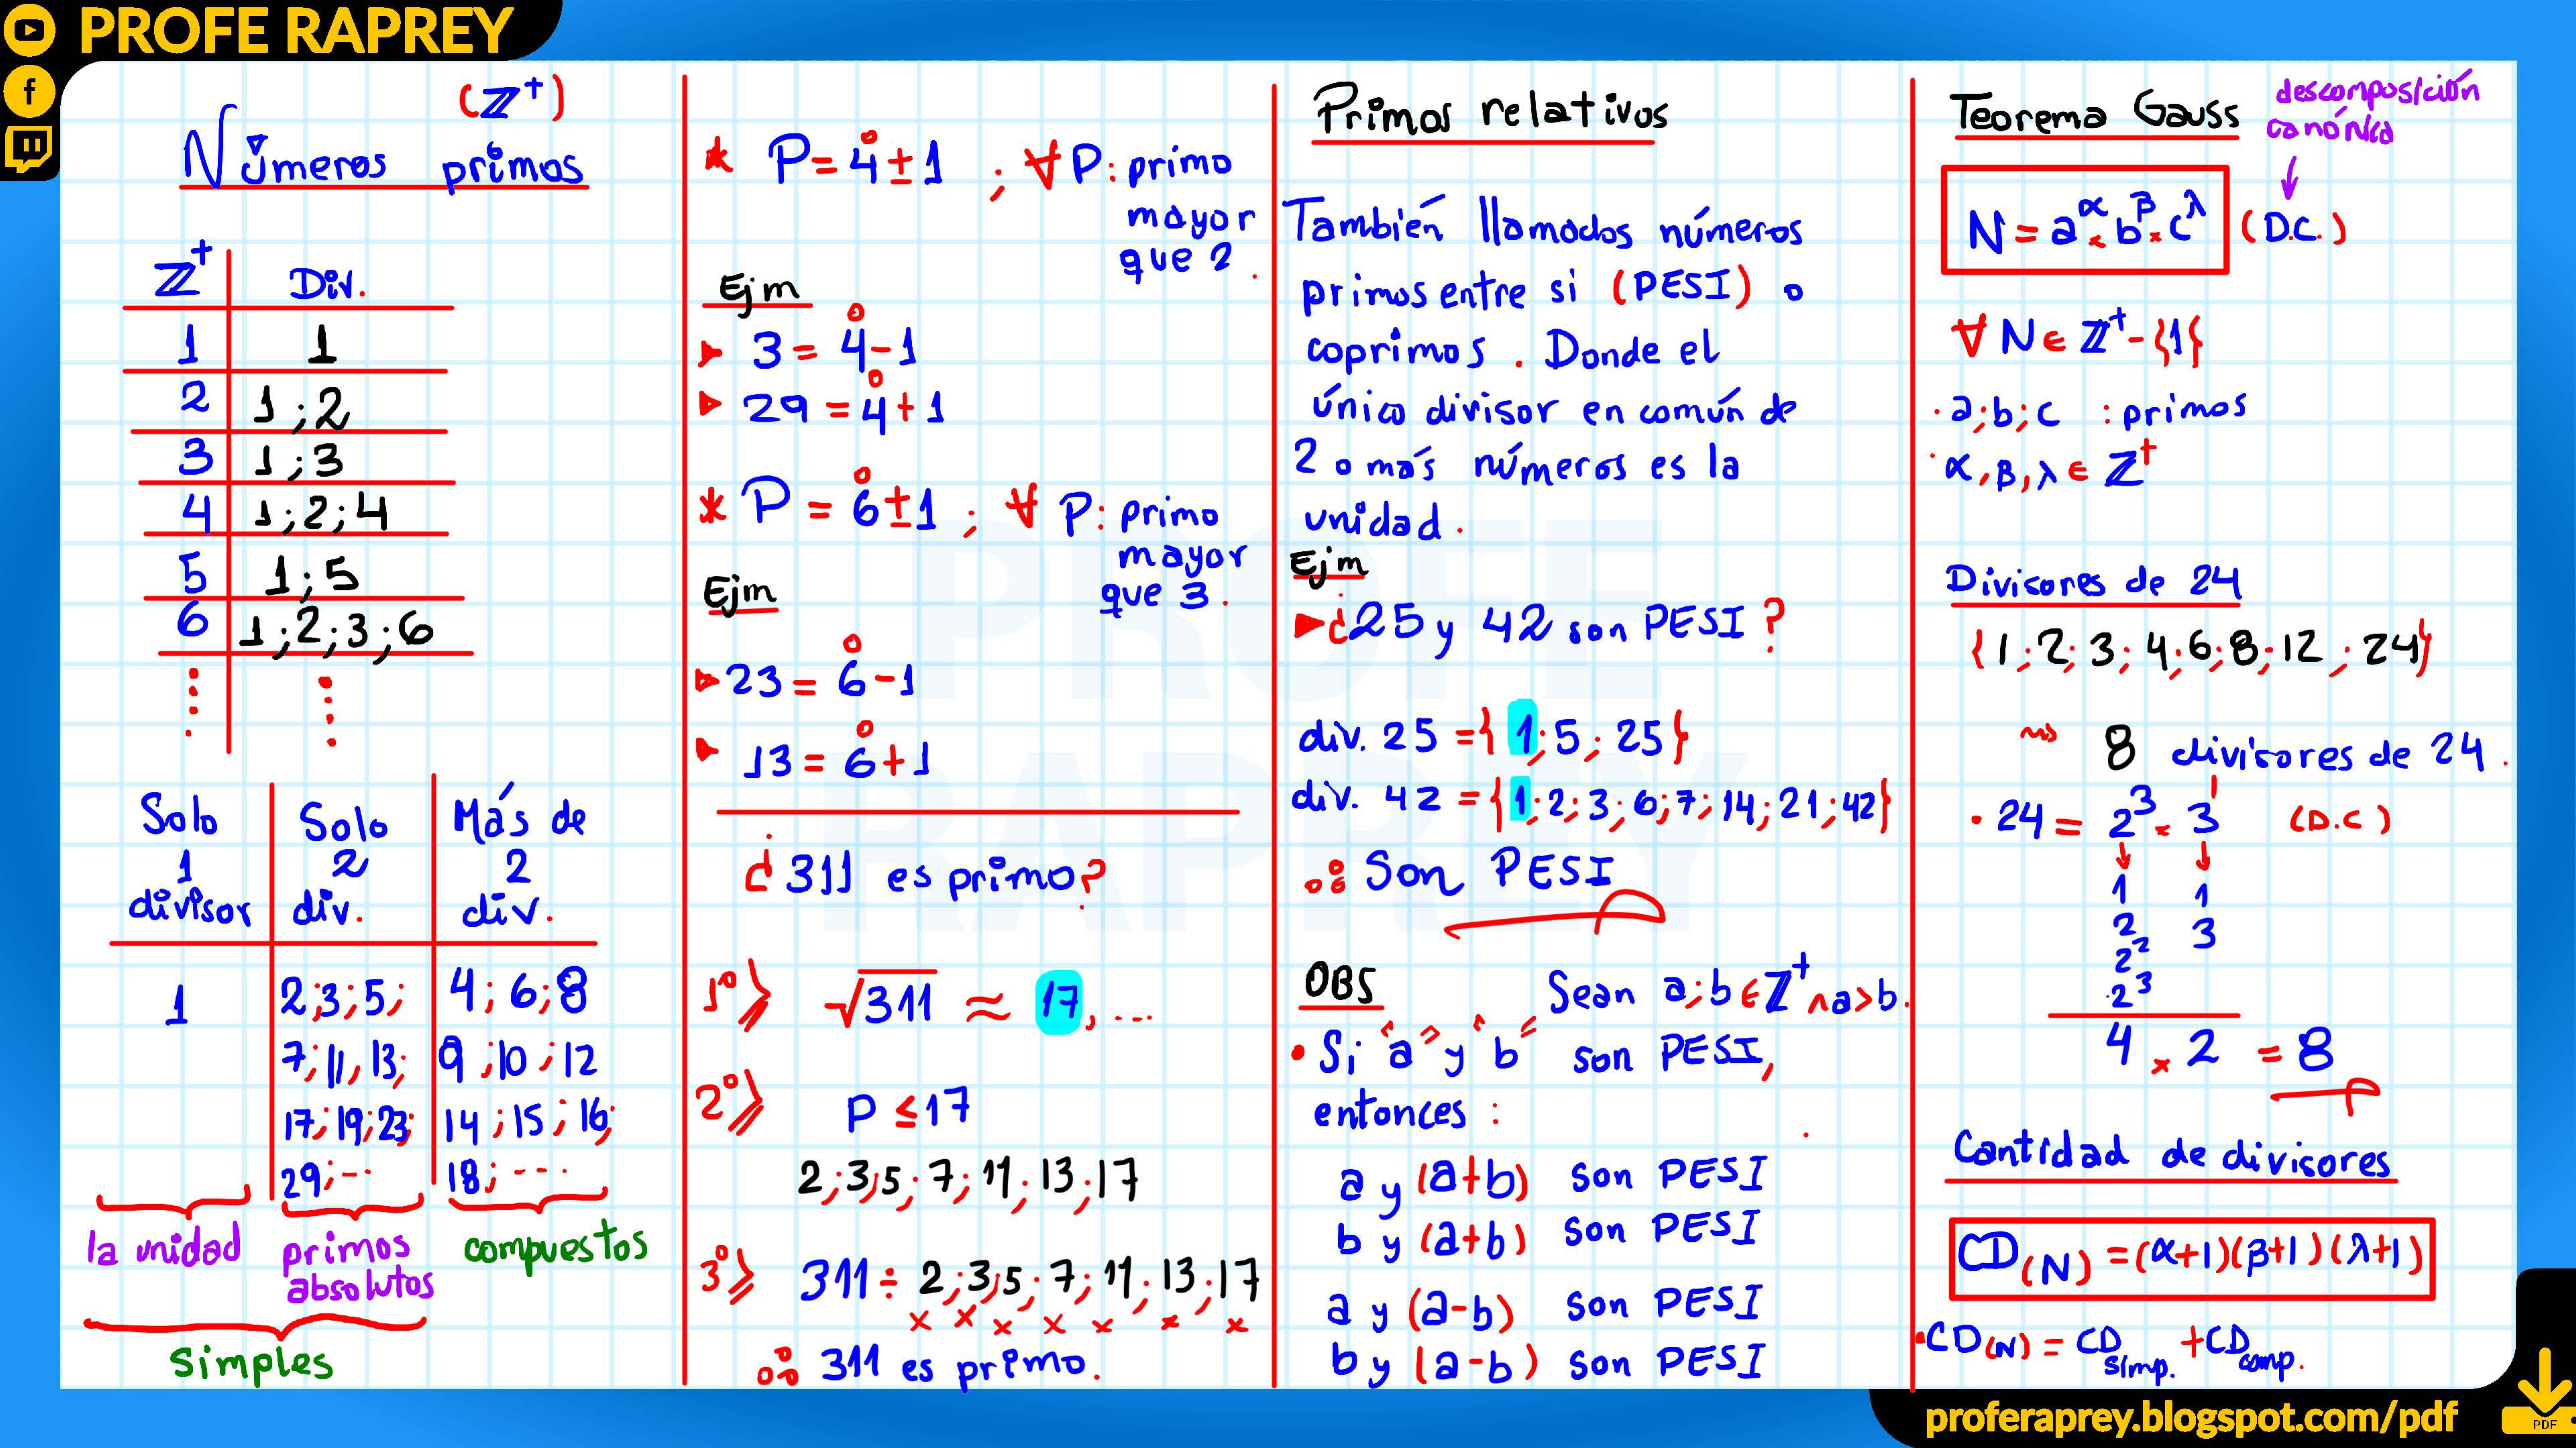 PROFE RAPREY
(ℤ⁺)
Números primos
ℤ⁺ | Div.
1 | 1
2 | 1;2
3 | 1;3
4 | 1;2;4
5 | 1;5
6 | 1;2;3;6
⋮ | ⋮
Solo 1 divisor | Solo 2 div. | Más de 2 div.
1 | 2;3;5; | 4;6;8
7;11,13; | 9;10;12
17;19;23; | 14;15;16;
29;... | 18;....
la unidad
primos absolutos
compuestos
Simples
* P = 4° ± 1 ; ∀ P: primo
mayor
que 2.
Ejm
▸ 3 = 4° - 1
▸ 29 = 4° + 1
* P = 6° ± 1 ; ∀ P: primo
mayor
que 3.
Ejm
▸ 23 = 6° - 1
▸ 13 = 6° + 1
¿311 es primo?
1°» √311 ≈ 17,...
2°» P ≤ 17
2;3;5;7;11;13;17
3°» 311 ÷ 2;3;5;7;11;13;17
× × × × × × ×
∴ 311 es primo.
Primos relativos
También llamados números
primos entre si (PESI) o
coprimos. Donde el
único divisor en común de
2 o más números es la
unidad.
Ejm
▸ ¿25 y 42 son PESI?
div. 25 = {1;5;25}
div. 42 = {1;2;3;6;7;14;21;42}
∴ Son PESI
OBS Sean a;b ∈ ℤ⁺ ∧ a>b.
• Si "a" y "b" son PESI,
entonces:
a y (a+b) son PESI
b y (a+b) son PESI
a y (a-b) son PESI
b y (a-b) son PESI
Teorema Gauss
descomposición
canónica
↓
N = a^α × b^β × c^λ (D.C.)
∀ N ∈ ℤ⁺ - {1}
• a;b;c : primos
• α,β,λ ∈ ℤ⁺
Divisores de 24
{1;2;3;4;6;8;12;24}
⇝ 8 divisores de 24.
• 24 = 2³ × 3¹ (D.C)
↓ ↓
1 1
2 3
2²
2³
4 × 2 = 8
Cantidad de divisores
CD(N) = (α+1)(β+1)(λ+1)
• CD(N) = CD simp. + CD comp.
PROFE
RAPREY
proferaprey.blogspot.com/pdf
PDF